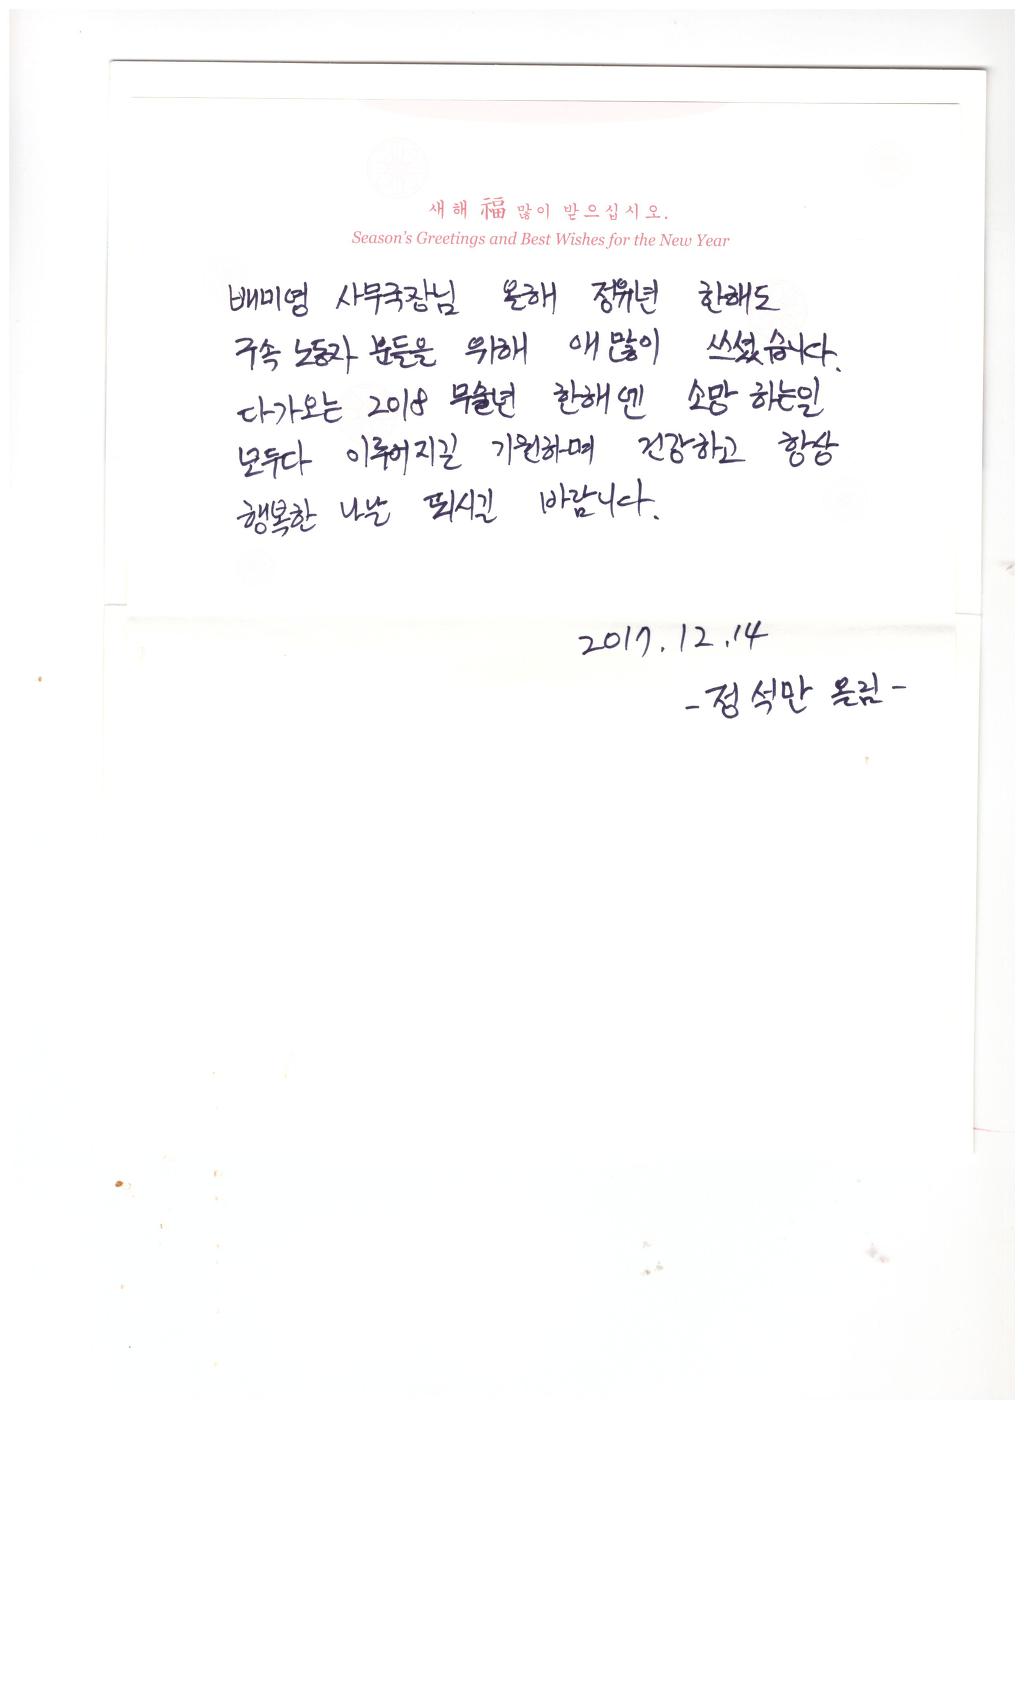 새해 福 많이 받으십시오.
Season's Greetings and Best Wishes for the New Year
배미영 사무국장님 올해 정유년 한해도
구속 노동자 분들을 위해 애 많이 쓰셨습니다.
다가오는 2018 무술년 한해엔 소망 하는일
모두다 이루어지길 기원하며 건강하고 항상
행복한 나날 되시길 바랍니다.
2017.12.14
-정석만 올림-